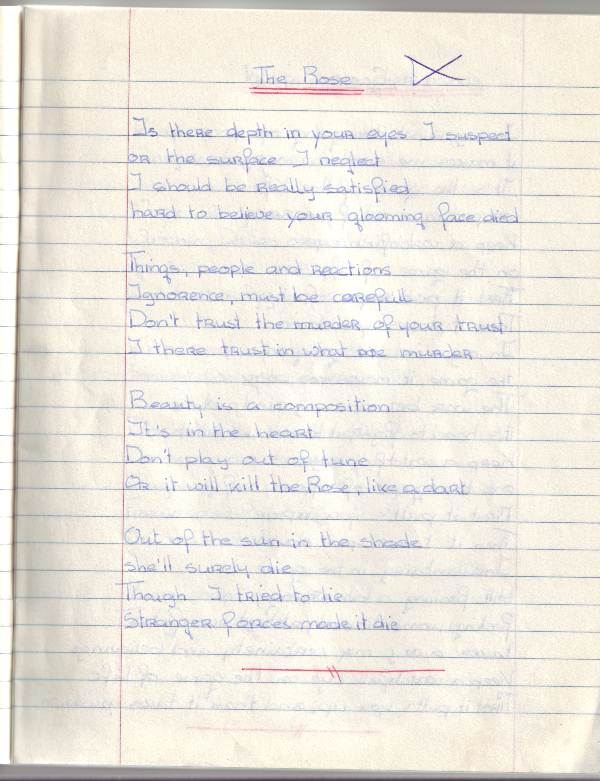 The Rose
Is there depth in your eyes I suspect
or the surface I neglect
I should be really satisfied
hard to believe your glooming face died
Things, people and reactions
Ignorence, must be carefull
Don't trust the murder of your trust
I there trust in what murder
Beauty is a composition
It's in the heart
Don't play out of tune
Or it will kill the Rose, like a dart
Out of the sun in the shade
she'll surely die
Though I tried to lie
Stranger forces made it die